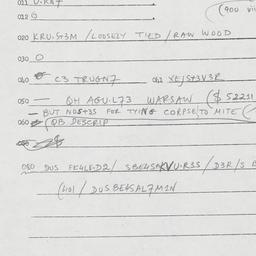 011 U.RN7
012 0
(900 vii
020 KRU.S+3M / LOOSELY TIED / RAW WOOD
030 0
040 C3 TRUGN7 042 XEJS+3V3R
050 — QH AGU.L73 WARSAW ($ 52211
— BUT NOS+3S FOR TYING CORPSE TO MITE
060 QB DESCRIP
080 DUS FE4LE·D2 / SBE4S U.R3S / D3R/S
(401 / DUSBE4SAL7M1N